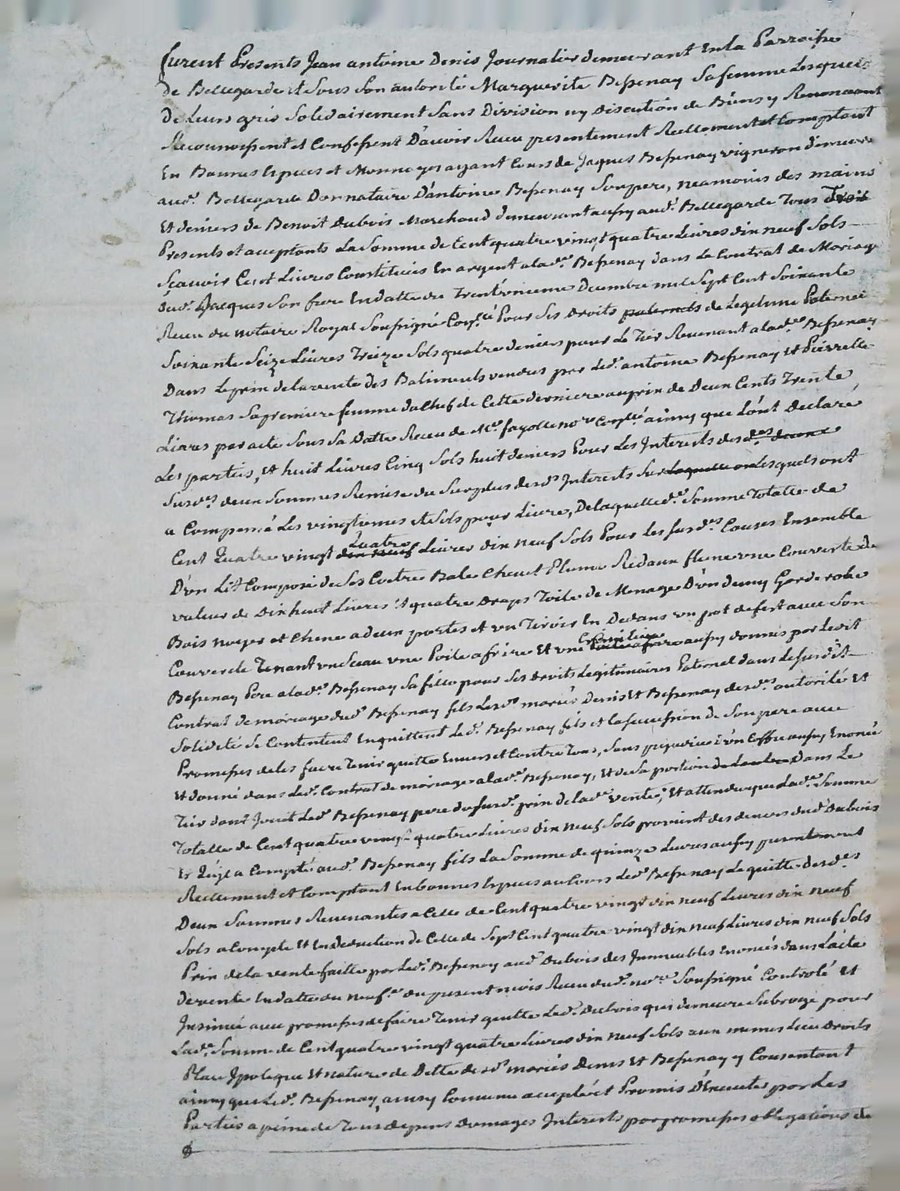 furent Presents Jean antoine Denis Journalier demeurant En la Parroisse
de Bellegarde et Sous Son autorité Marguerite Bessenay Sa femme Lesquels
de Leurs gris Solidairement Sans Division ny Discution de Biens y Renoncant
Reconnoissent et Confessent D'avoir Receu presentement Reellement et Comptant
En Bonnes Especes et Monnoye ayant Cours de Jaques Bessenay vigneron demeurant
aud. Bellegarde Donnataire D'antoine Bessenay Son pere, neamoins des mains
Et deniers de Benoit Dubois Marchand demeurant aussy aud. Bellegarde Tous
Presents et acceptants La Somme de Cent quatre vingt quatre Livres dix neuf Sols
Scavoir Cent Livres Constituées En argent a lad.e Bessenay dans Le Contrat de Mariage
dud. Jacques Son frere En datte du Trente Decembre mil Sept Cent Soixante
Receu du notaire Royal Soussigné Pour Ses Droits paternels de Legitime Paternel
Soixante Seize Livres Treize Sols quatre deniers pour Le Tier Revenant a lad.e Bessenay
Dans Le prix de la vente des Batiments vendus par Led. antoine Bessenay et Pierrette
Thomas Sa premiere femme du Chef de Cette derniere au prix de Deux Cents Trente
Livres par acte Sous Sa Datte Receu de M.e fayolle no.re ainsy que L'ont Declaré
Les parties, Et huit Livres Cinq Sols huit deniers Pour Les Interets des
Susd.es deux Sommes Remise du Surplus desd. Interets Sur laquelle on Lesquels ont
a Compensé Les vingtiemes et Sols pour Livre, De laquelle d.e Somme Totalle de
Cent Quatre vingt dix neuf quatre Livres dix neuf Sols Pour Les Susd.es Causes Ensemble
D'un Lit Composé de Ses Coetres Bale Chevet Plume Rideaux flene une Couverte de
valeur de Dix huit Livres et quatre Draps Toile de Menage D'un demy Garde robe
Bois noyer et Chene a deux portes et un Tiroir En Dedans un pot de fert avec Son
Couvercle Tenant un Seau une Poile a frire Et une aussy donnés par Ledit
Bessenay Pere a lad.e Bessenay Sa fille pour Ses Droits Legitimaires Paternel dans Le Susdit
Contrat de mariage dud. Bessenay fils Lesd. mariés Denis Et Bessenay desd. autorité Et
Solidité Se Contentent En quittent Led. Bessenay fils et La Succession de Son pere avec
Promesses de Les faire Tenir quittes Envers et Contre Tous, Sans prejudice d'un Coffre aussy Enoncé
Et donné dans Led. Contrat de mariage a lad.e Bessenay, et de Sa portion dans Le
Tier dont Jouit Led. Bessenay pere du Susd. prix de lad.e vente; Et attendu que Lad.e Somme
Totalle de Cent quatre vingt quatre Livres dix neuf Sols provient des deniers dud. Dubois
Et Qu'il a Compté aud. Bessenay fils La Somme de quinze Livres aussy presentement
Reellement et Comptant En bonnes Especes au Cours Led. Bessenay Le quitte desd.es
Deux Sommes Revenantes a Celle de Cent quatre vingt dix neuf Livres dix neuf
Sols a Compte Et En deduction de Celle de Sept Cent quatre vingt dix neuf Livres dix neuf Sols
Prix de la vente faitte par Led. Bessenay aud. Dubois des Immeubles Enoncés dans L'acte
de vente En datte du neuf.e du present mois Receu dud. no.re Soussigné Controlé Et
Insinué avec promesses de faire Tenir quitte Led. Dubois qui demeure Subrogé pour
Lad.e Somme de Cent quatre vingt quatre Livres dix neuf Sols aux memes Lieu Droits
Place Ipoteque Et nature de Dette desd. mariés Denis Et Bessenay y Consentant
ainsy que Led. Bessenay, ainsy Convenu accepté et Promis D'Executer par Les
Parties a peine de Tous depens domages Interets par promesses obligations de